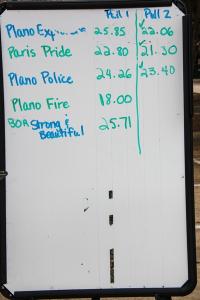 Pull 1 Pull 2
Plano 25.85 22.06
Paris Pride 22.80 21.30
Plano Police 24.26 23.40
Plano Fire 18.00
BOA Strong & 25.71
Beautiful